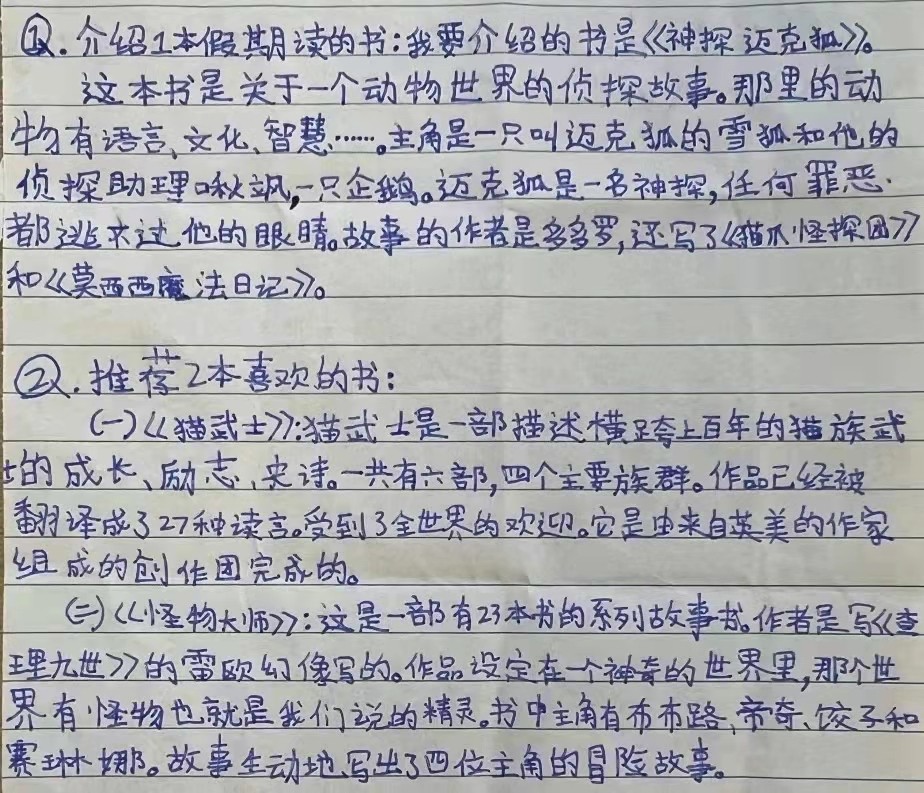 ①. 介绍1本假期读的书:我要介绍的书是《神探迈克狐》。
这本书是关于一个动物世界的侦探故事。那里的动
物有语言、文化、智慧……。主角是一只叫迈克狐的雪狐和他的
侦探助理啾飒,一只企鹅。迈克狐是一名神探,任何罪恶
都逃不过他的眼睛。故事的作者是多多罗,还写了《猫爪怪探团》
和《莫西西魔法日记》。
②. 推荐2本喜欢的书:
(一)《猫武士》:猫武士是一部描述横跨上百年的猫族武
士的成长、励志、史诗。一共有六部,四个主要族群。作品已经被
翻译成了27种读言。受到了全世界的欢迎。它是由来自英美的作家
组成的创作团完成的。
(二)《怪物大师》:这是一部有23本书的系列故事书。作者是写《查
理九世》的雷欧幻像写的。作品设定在一个神奇的世界里,那个世
界有怪物也就是我们说的精灵。书中主角有布布路、帝奇、饺子和
赛琳娜。故事生动地写出了四位主角的冒险故事。